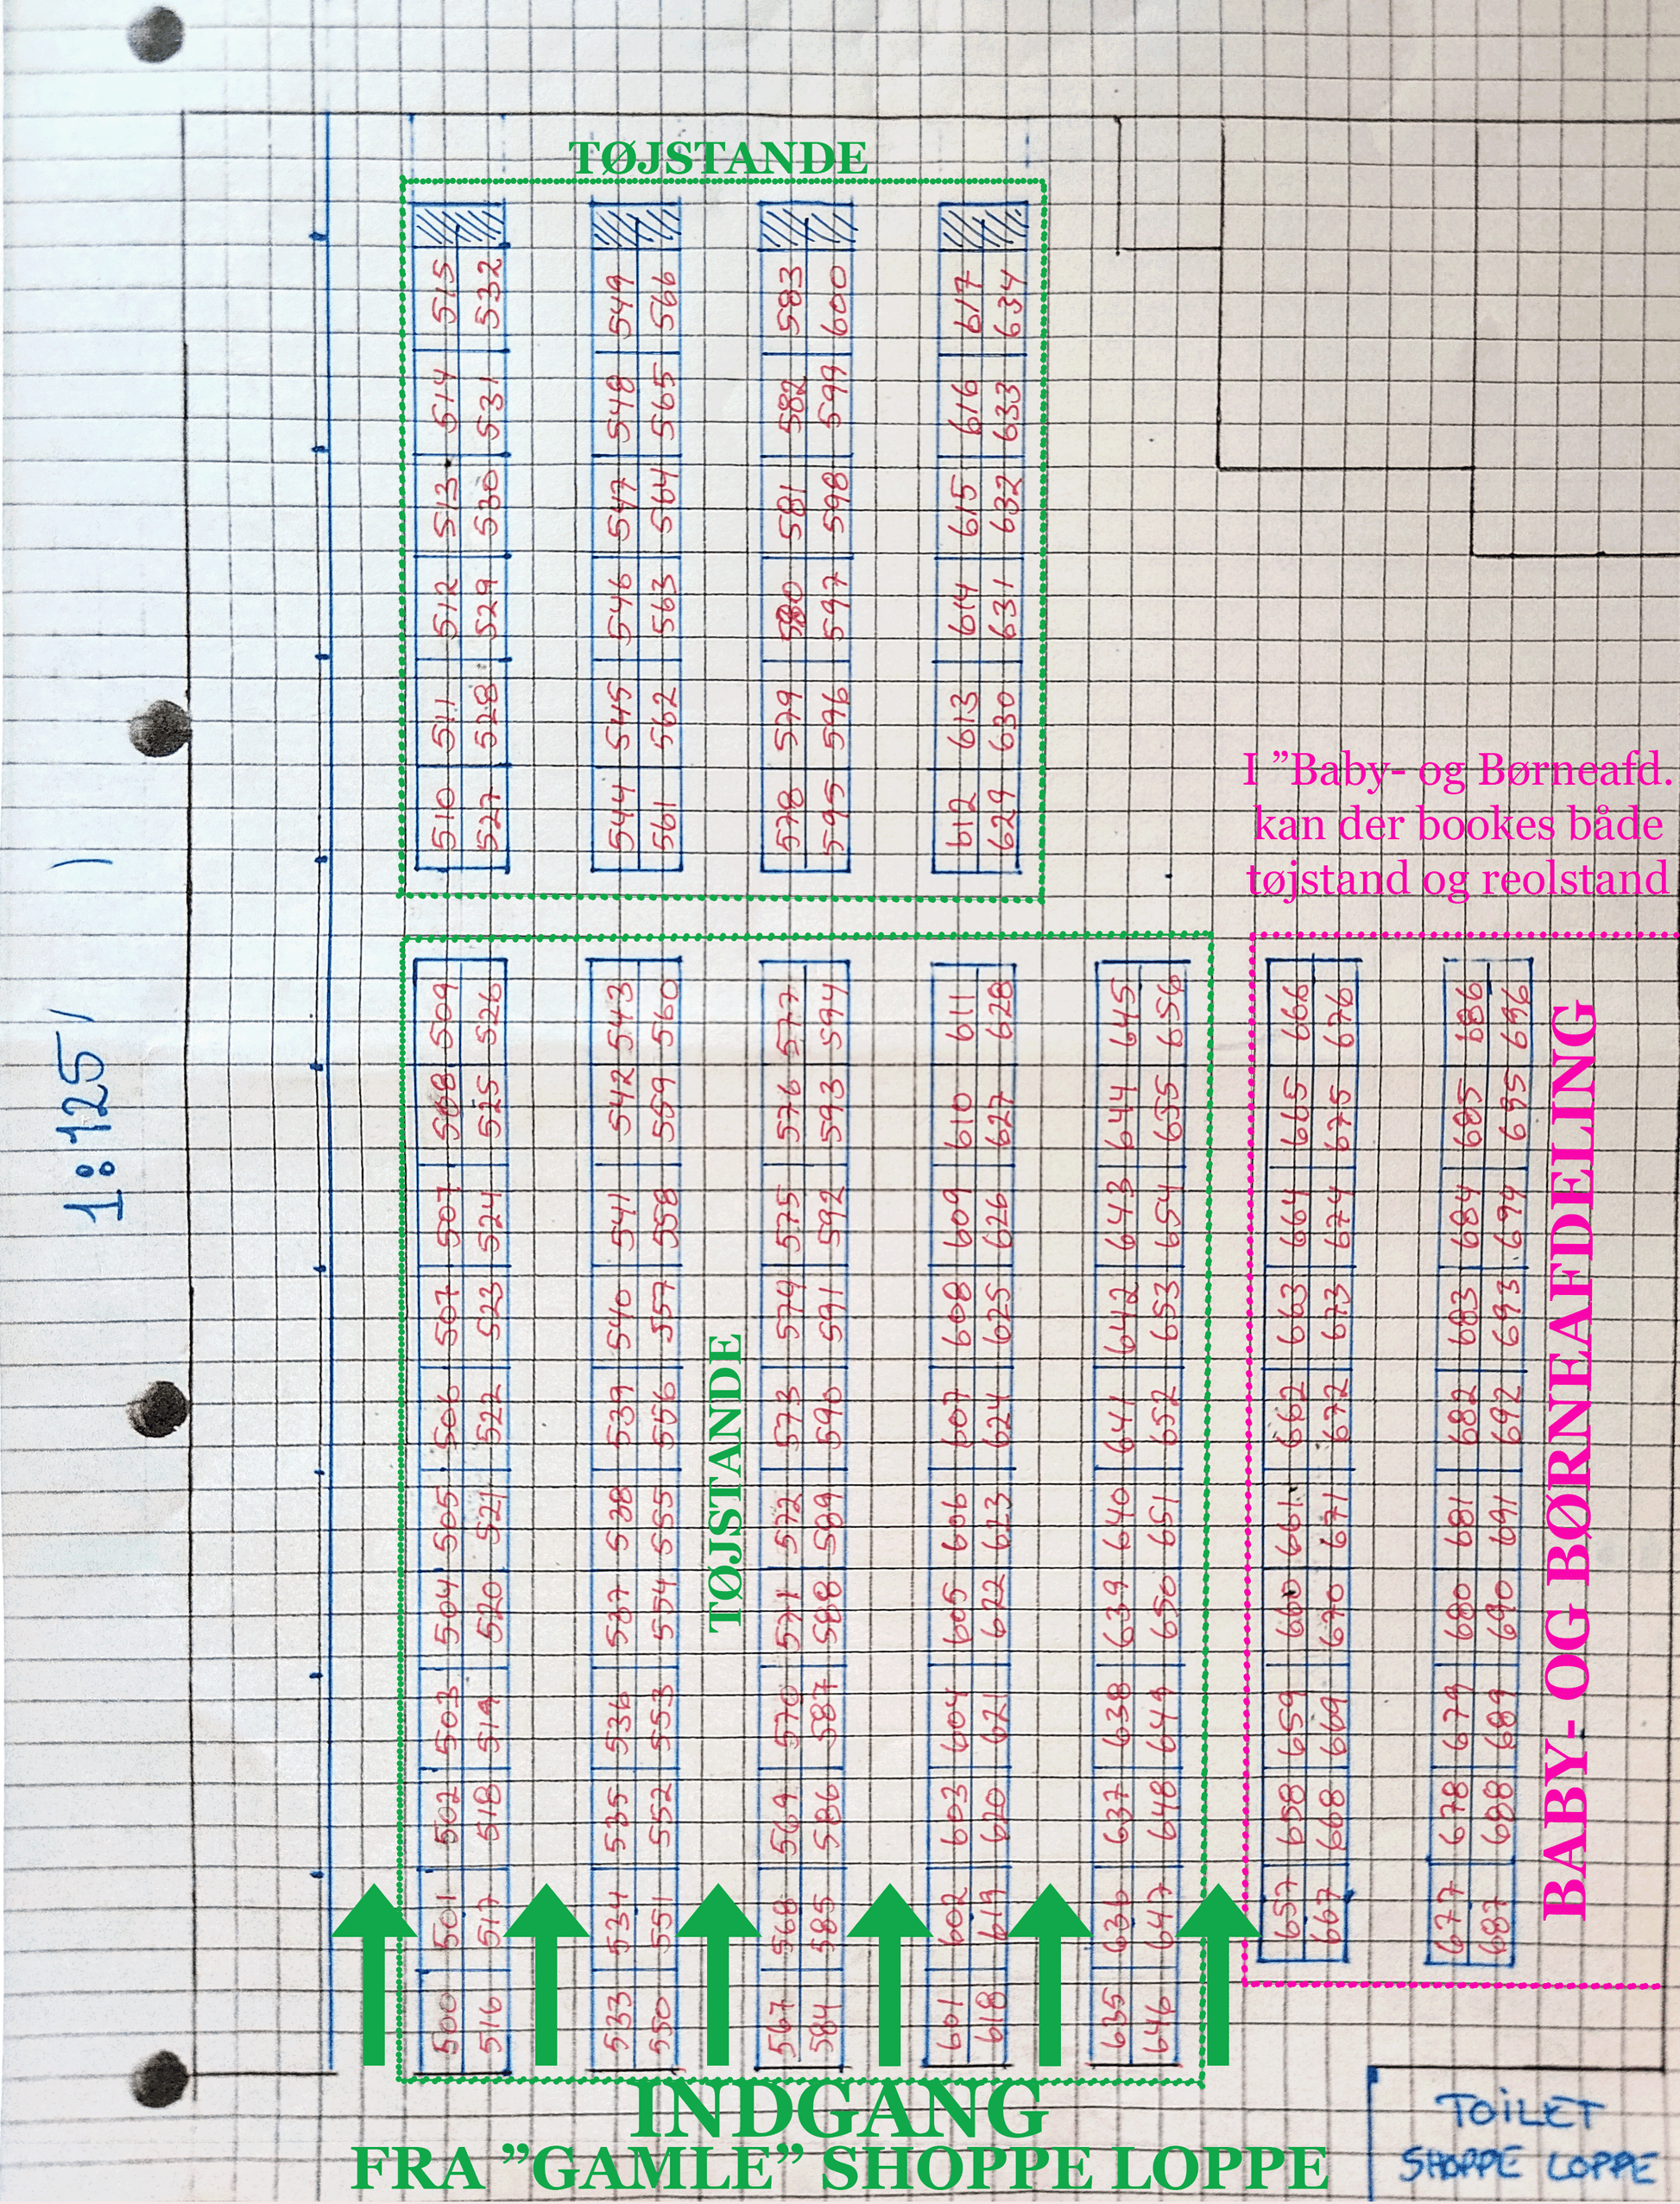 1:125
TØJSTANDE
510 511 512 513 514 515
527 528 529 530 531 532
544 545 546 547 548 549
561 562 563 564 565 566
578 579 580 581 582 583
595 596 597 598 599 600
612 613 614 615 616 617
629 630 631 632 633 634
I ”Baby- og Børneafd.
kan der bookes både
tøjstand og reolstand
500 501 502 503 504 505 506 507 507 508 509
516 517 518 519 520 521 522 523 524 525 526
533 534 535 536 537 538 539 540 541 542 543
550 551 552 553 554 555 556 557 558 559 560
TØJSTANDE
567 568 569 570 571 572 573 574 575 576 577
584 585 586 587 588 589 590 591 592 593 594
601 602 603 604 605 606 607 608 609 610 611
618 619 620 621 622 623 624 625 626 627 628
635 636 637 638 639 640 641 642 643 644 645
646 647 648 649 650 651 652 653 654 655 656
657 658 659 660 661 662 663 664 665 666
667 668 669 670 671 672 673 674 675 676
677 678 679 680 681 682 683 684 685 686
687 688 689 690 691 692 693 694 695 696
BABY- OG BØRNEAFDELING
INDGANG
FRA ”GAMLE” SHOPPE LOPPE
TOILET
SHOPPE LOPPE